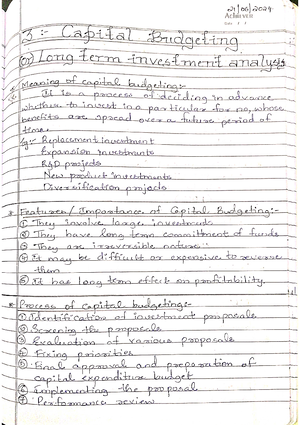 21/06/2024
3:- Capital Budgeting
(or) Long term investment analysis
* Meaning of capital budgeting:-
It is a process of deciding in advance
whether to invest in a particular for no, whose
benefits are spread over a future period of
time.
Eg:- Replacement investment
Expansion investments
R&D projects
New product investments
Diversification projects
* Features/Importance of Capital Budgeting:-
① They involve large investment
② They have long term committment of funds
③ They are irreversible nature
④ It may be difficult or expensive to reverse
them
⑤ It has long term effect on profitability.
* Process of Capital budgeting:-
① Identification of investment proposals
② Screening the proposals
③ Evaluation of various proposals
④ Fixing priorities
⑤ Final approval and preparation of
capital expenditure budget
⑥ Implementing the proposal
⑦ Performance review